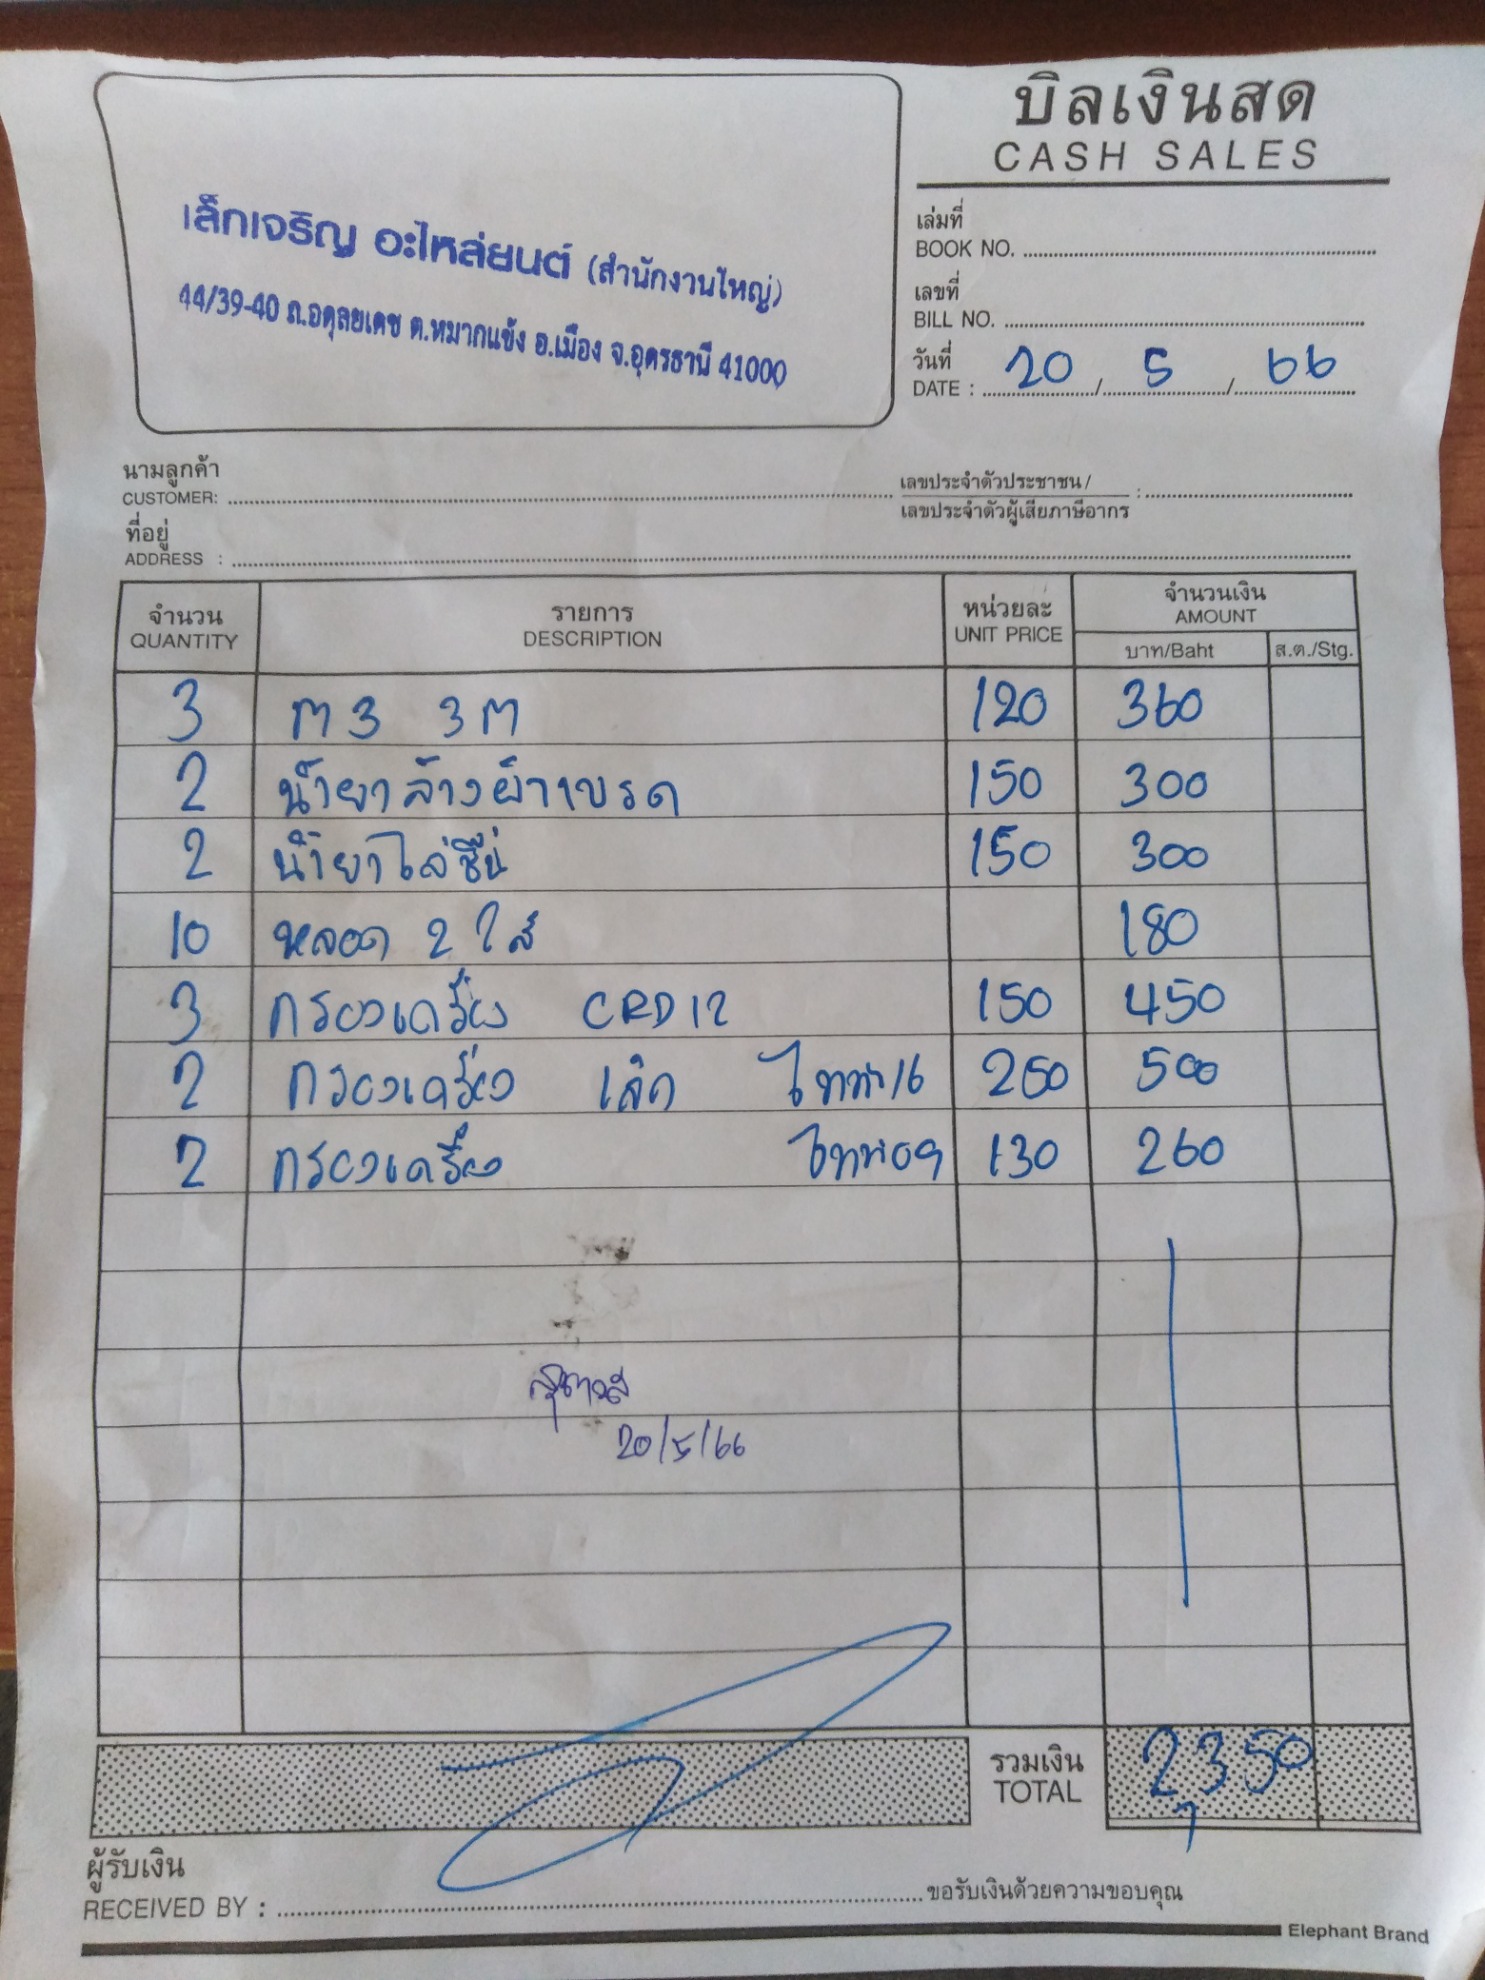 บิลเงินสด
CASH SALES
เล็กเจริญ อะไหล่ยนต์ (สำนักงานใหญ่)
44/39-40 ถ.อดุลยเดช ต.หมากแข้ง อ.เมือง จ.อุดรธานี 41000
เล่มที่
BOOK NO.
เลขที่
BILL NO.
วันที่
DATE : 20 / 5 / 66
นามลูกค้า
CUSTOMER:
เลขประจำตัวประชาชน /
เลขประจำตัวผู้เสียภาษีอากร :
ที่อยู่
ADDRESS :
จำนวน รายการ หน่วยละ จำนวนเงิน
QUANTITY DESCRIPTION UNIT PRICE AMOUNT
บาท/Baht ส.ต./Stg.
3 3M 120 360
2 น้ำยาล้างผ้าเบรค 150 300
2 น้ำยาไล่ชื้น 150 300
10 หลอด 2 ไส้ 180
3 กรองเครื่อง CRD12 150 450
2 กรองเครื่อง 16 250 500
2 กรองเครื่อง 09 130 260
20/5/66
รวมเงิน
TOTAL 2350
ผู้รับเงิน
RECEIVED BY : ขอรับเงินด้วยความขอบคุณ
Elephant Brand